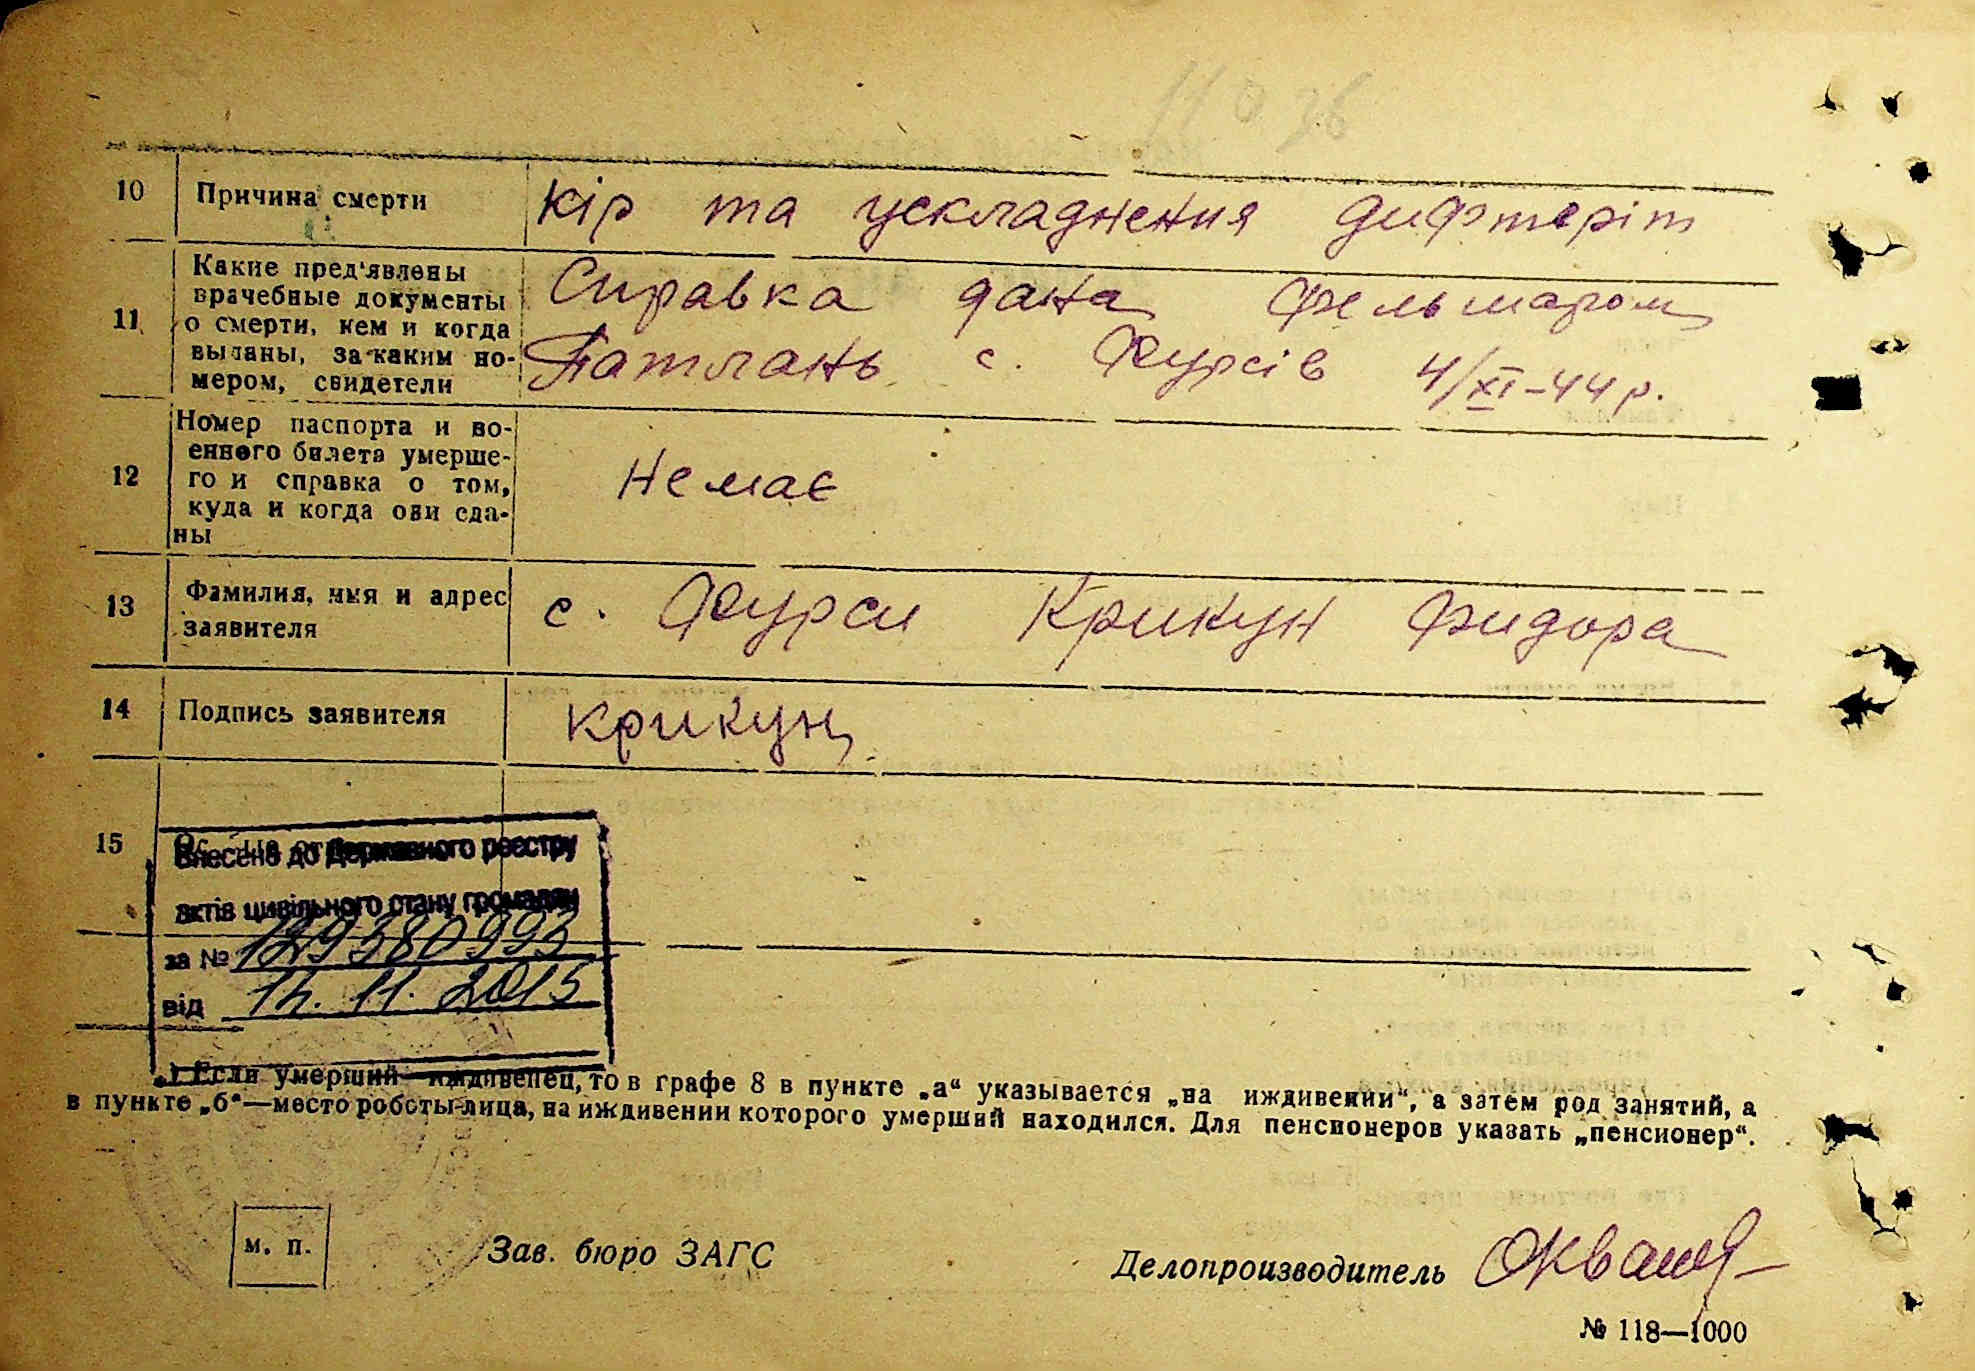 11036
10 Причина смерти Кір та ускладнення дифтеріт
11 Какие пред'явлены
врачебные документы
о смерти, кем и когда
выданы, за каким но-
мером, свидетели
Справка дана фельшаром
Патлань с. Фурсів 4/XI-44 р.
12 Номер паспорта и во-
енного билета умерше-
го и справка о том,
куда и когда они сда-
ны
Немає
13 Фамилия, имя и адрес
заявителя
с. Фурси Крикун Фидора
14 Подпись заявителя Крикун
15
Внесено до Державного реєстру
актів цивільного стану громадян
за № 129380993
від 14. 11. 2015
*) Если умерший—иждивенец, то в графе 8 в пункте „а“ указывается „на иждивении“, а затем род занятий, а
в пункте „б“—место работы лица, на иждивении которого умерший находился. Для пенсионеров указать „пенсионер“.
м. п. Зав. бюро ЗАГС Делопроизводитель
№ 118—1000